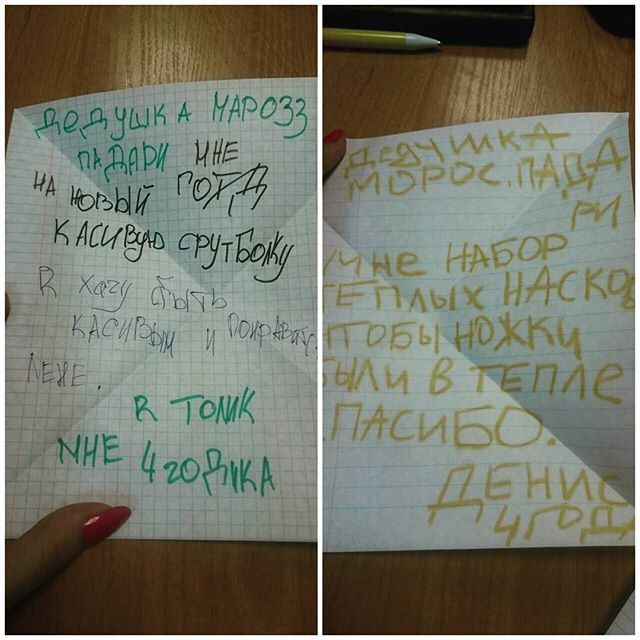 ДЕДУШКА МАРОЗЗ
ПАДАРИ МНЕ
НА НОВЫЙ ГОТД
КАСИВУЮ СРУТБОЛКУ
R хачу сбыть
КАСИВЫМ И ПОНРАВИТС
ЛЕНЕ.
R ТОЛИК
МНЕ 4 годика
ДЕДУШКА
МОРОС, ПАДА
РИ
МНЕ НАБОР
ТЕПЛЫХ НАСКО
ЧТОБЫ НОЖКИ
БЫЛИ В ТЕПЛЕ
СПАСИБО.
ДЕНИС
4 ГОД